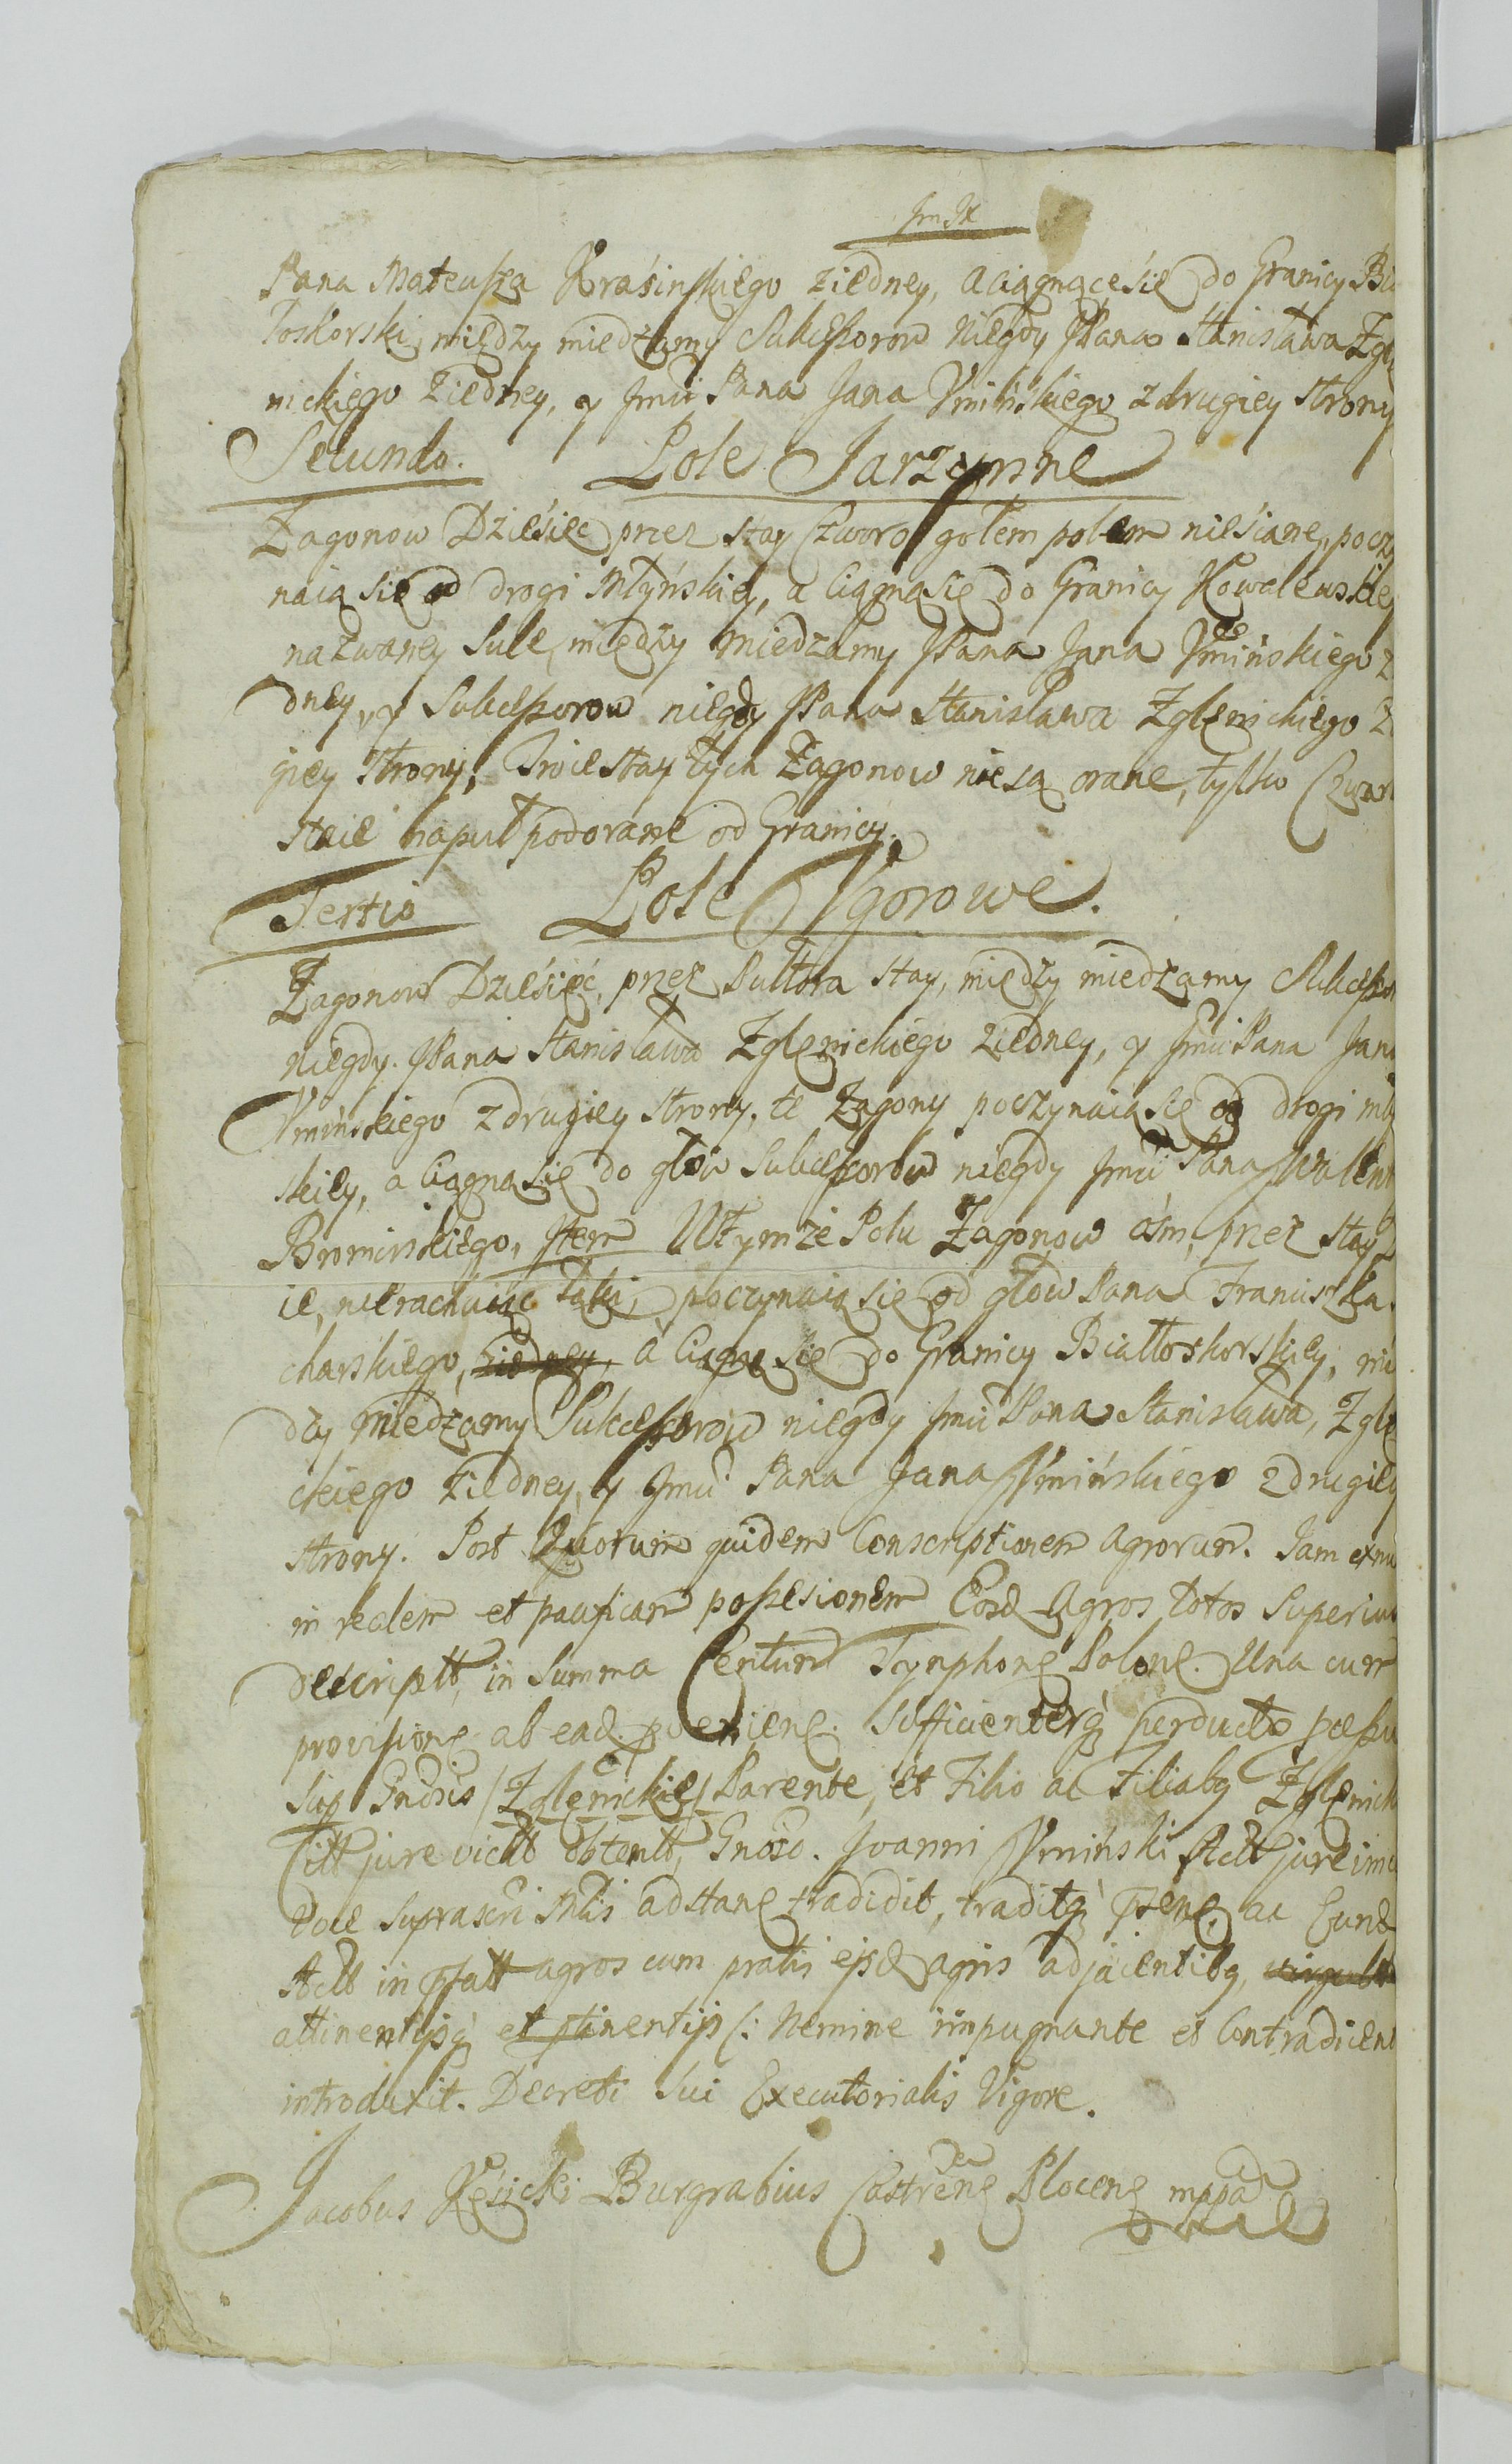 Pana Mateusza Krasinskiego ziedney, a ciągnącesie do Granicy Bia
łoskorski, między miedzamy Sukceszorow niegdy JPana Stanisława Zgle
nickiego ziedney, y Jmci Pana Jana Vminskiego zdrugiey strony
Secundo. Pole Jarzynne
Zagonow Dziesięc przez stay czworo gołem polem niesiane, poczy
naią się od drogi Młyńskiey, a Ciągnąsię do Granicy Kowalewskiey
nazwaney Sule, między miedzamy JPana Jana Vminskiego z
dney, y Sukceszorow niegdy JPana Stanisława Zglenickiego z
giey strony, Troie stay tych Zagonow niesą orane, tylko Czwar
staie napuł podorane od Granicy.
Tertio Pole Vgorowe.
Zagonow Dziesięć, przez Pułtora stay, między miedzamy Sukceszor
niegdy JPana Stanisława Zglenickiego ziedney, y Jmci Pana Jana
Vminskiego zdrugiey strony, te Zagony poczynaiąsię od drogi mły
skiey, a Ciągnąsię do głow Sukceszorow niegdy Jmci Pana Walent
Bromirskiego, Item Wtymże Polu Zagonow ośm, przez stay
ie, nierachuiąc łąki, poczynaią się od głow Pana Franciszka
charskiego, ziedney, a Ciągną sie do Granicy Białłoskorskiey, mię
dzy miedzamy Sukceszorow niegdy Jmci Pana Stanisława, Zgle
ckiego ziedney, y Jmci Pana Jana Vminskiego zdrugiey
strony. Post Quorum quidem Conscriptionem agrorum. Jam
in realem et pacificam possesionem Eosd Agros totos Superius
descriptt, in Summa Centum Tynphong Polong. Una cum
provisiong ab ead Sufficienterq perducto
Sup Gndsis /Zglenickie/ Parente, et Filio ac Filiabq Zglenick
Citt jure victt obtentt, Gnoso. Joanni Vminski Actt jure
suprascri adstang tradidit, traditq ac Eund
Actt in agros cum pratis ejsd agris adjacentibq,
attinentijsq et ptinentijs /: Nemine impugnante et Contradicen
introduxit. Decreti Sui Executorialis Vigore.
Jacobus Kęsicki Burgrabius Castreng Ploceng mppa